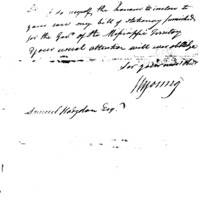 I do myself, the honour to inclose to
you our my bill of stationary furnished
for the Gov.t of the Missisippi Territory
Your usual attention will much oblige
Sir your
WYoung
Samuel Hodgdon Esq.r